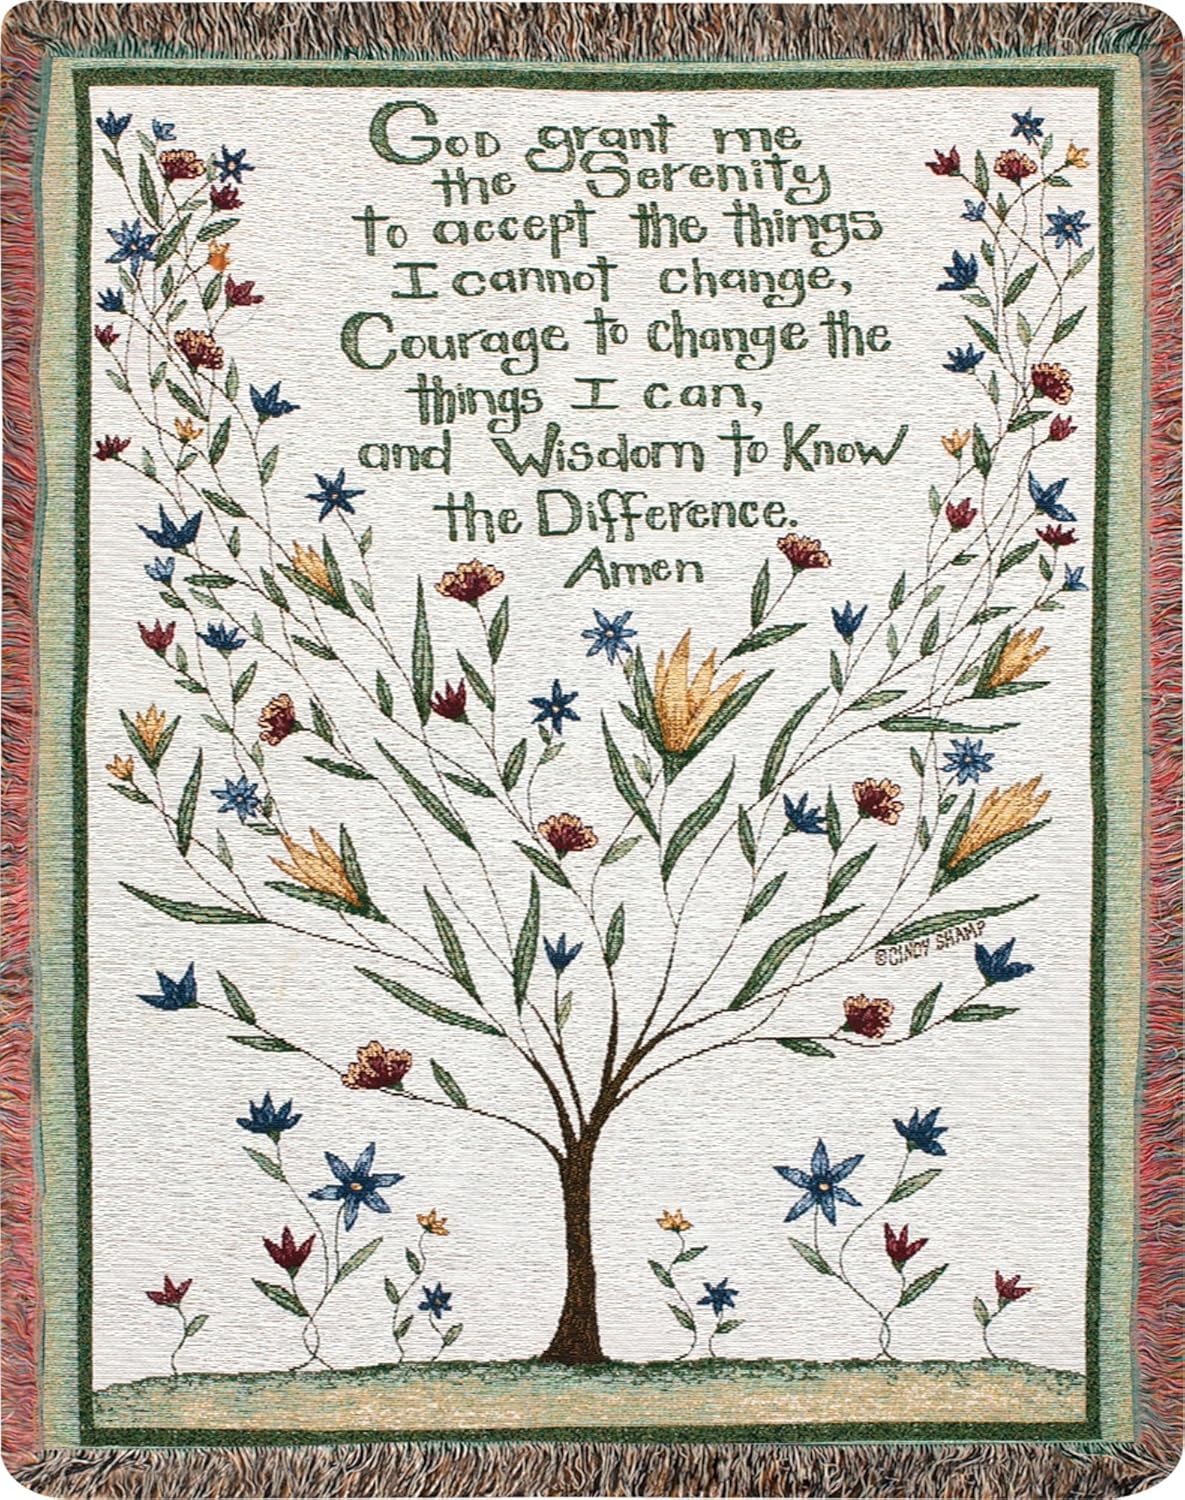 God grant me
the Serenity
to accept the things
I cannot change,
Courage to change the
things I can,
and Wisdom to Know
the Difference.
Amen
©CINDY SHAMP